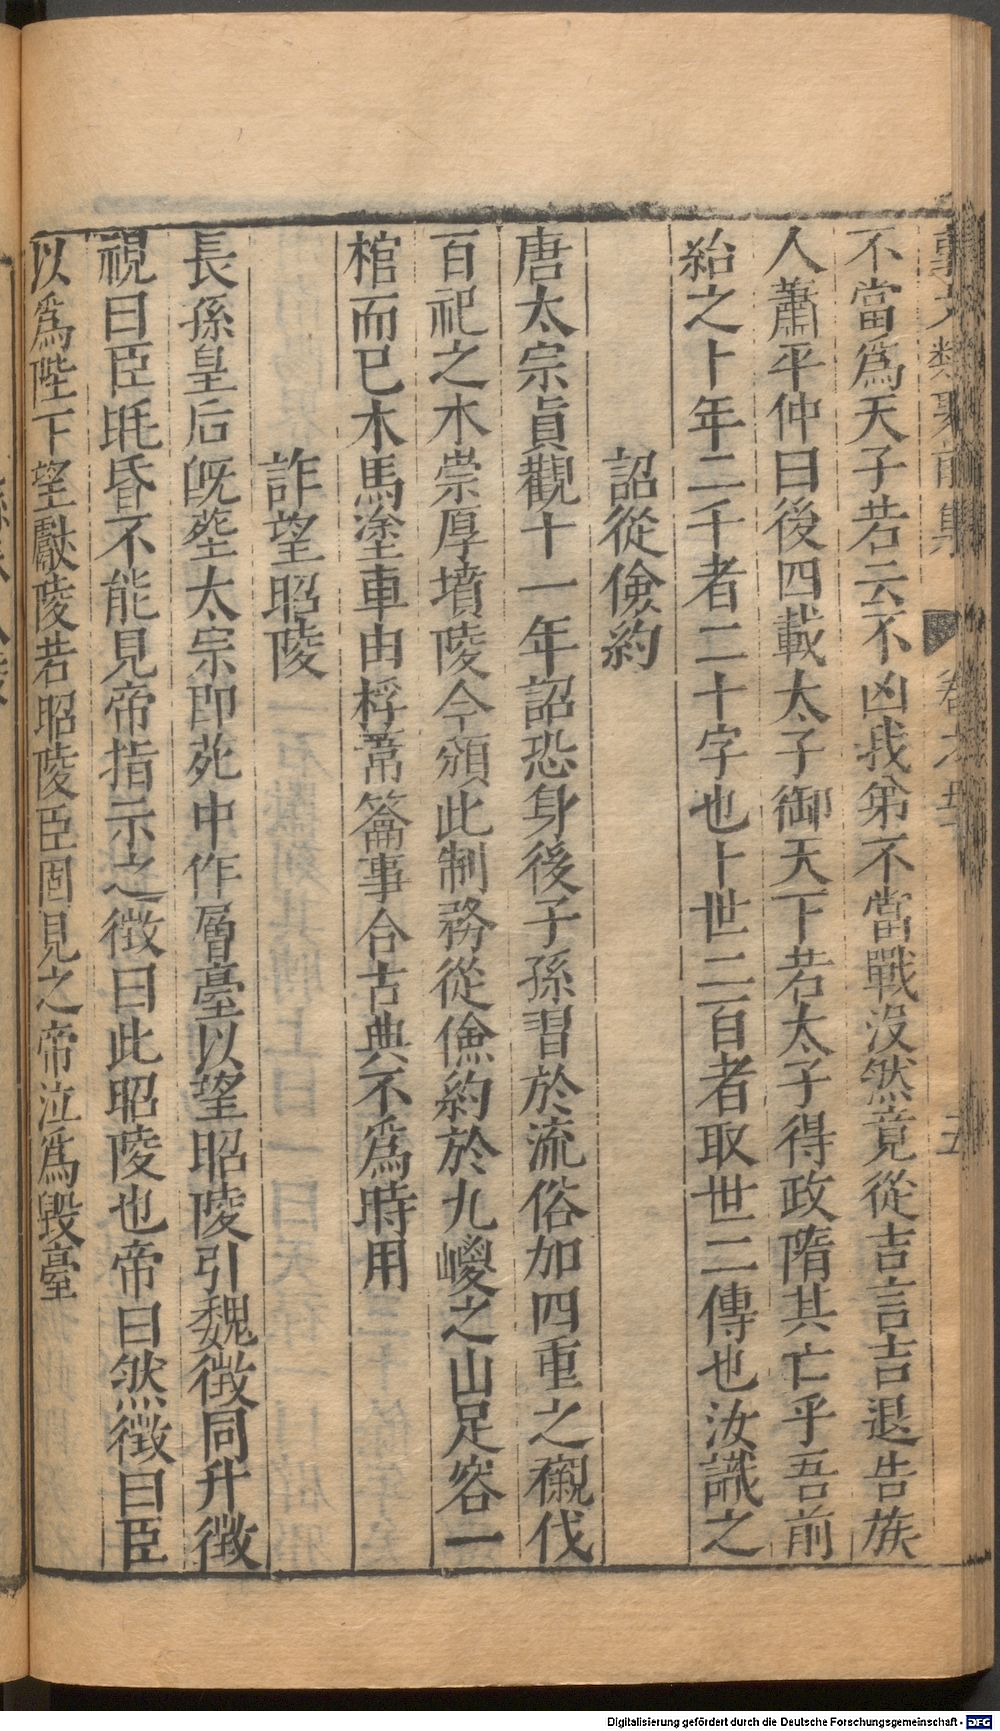 事文類聚前集 卷之五十 五
不當爲天子若云不凶我弟不當戰沒然竟從吉言吉退告族
人蕭平仲曰後四載太子御天下若太子得政隋其亡乎吾前
紿之卜年二千者二十字也卜世二百者取世二傳也汝識之
詔從儉約
唐太宗貞觀十一年詔恐身後子孫習於流俗加四重之櫬伐
百祀之木崇厚墳陵今頒此制務從儉約於九嵕之山足容一
棺而已木馬塗車由桴葦籥事合古典不爲時用
詐望昭陵
長孫皇后旣葬太宗即苑中作層臺以望昭陵引魏徵同升徵
視曰臣眊昏不能見帝指示之徵曰此昭陵也帝曰然徵曰臣
以爲陛下望獻陵若昭陵臣固見之帝泣爲毀臺
Digitalisierung gefördert durch die Deutsche Forschungsgemeinschaft - DFG